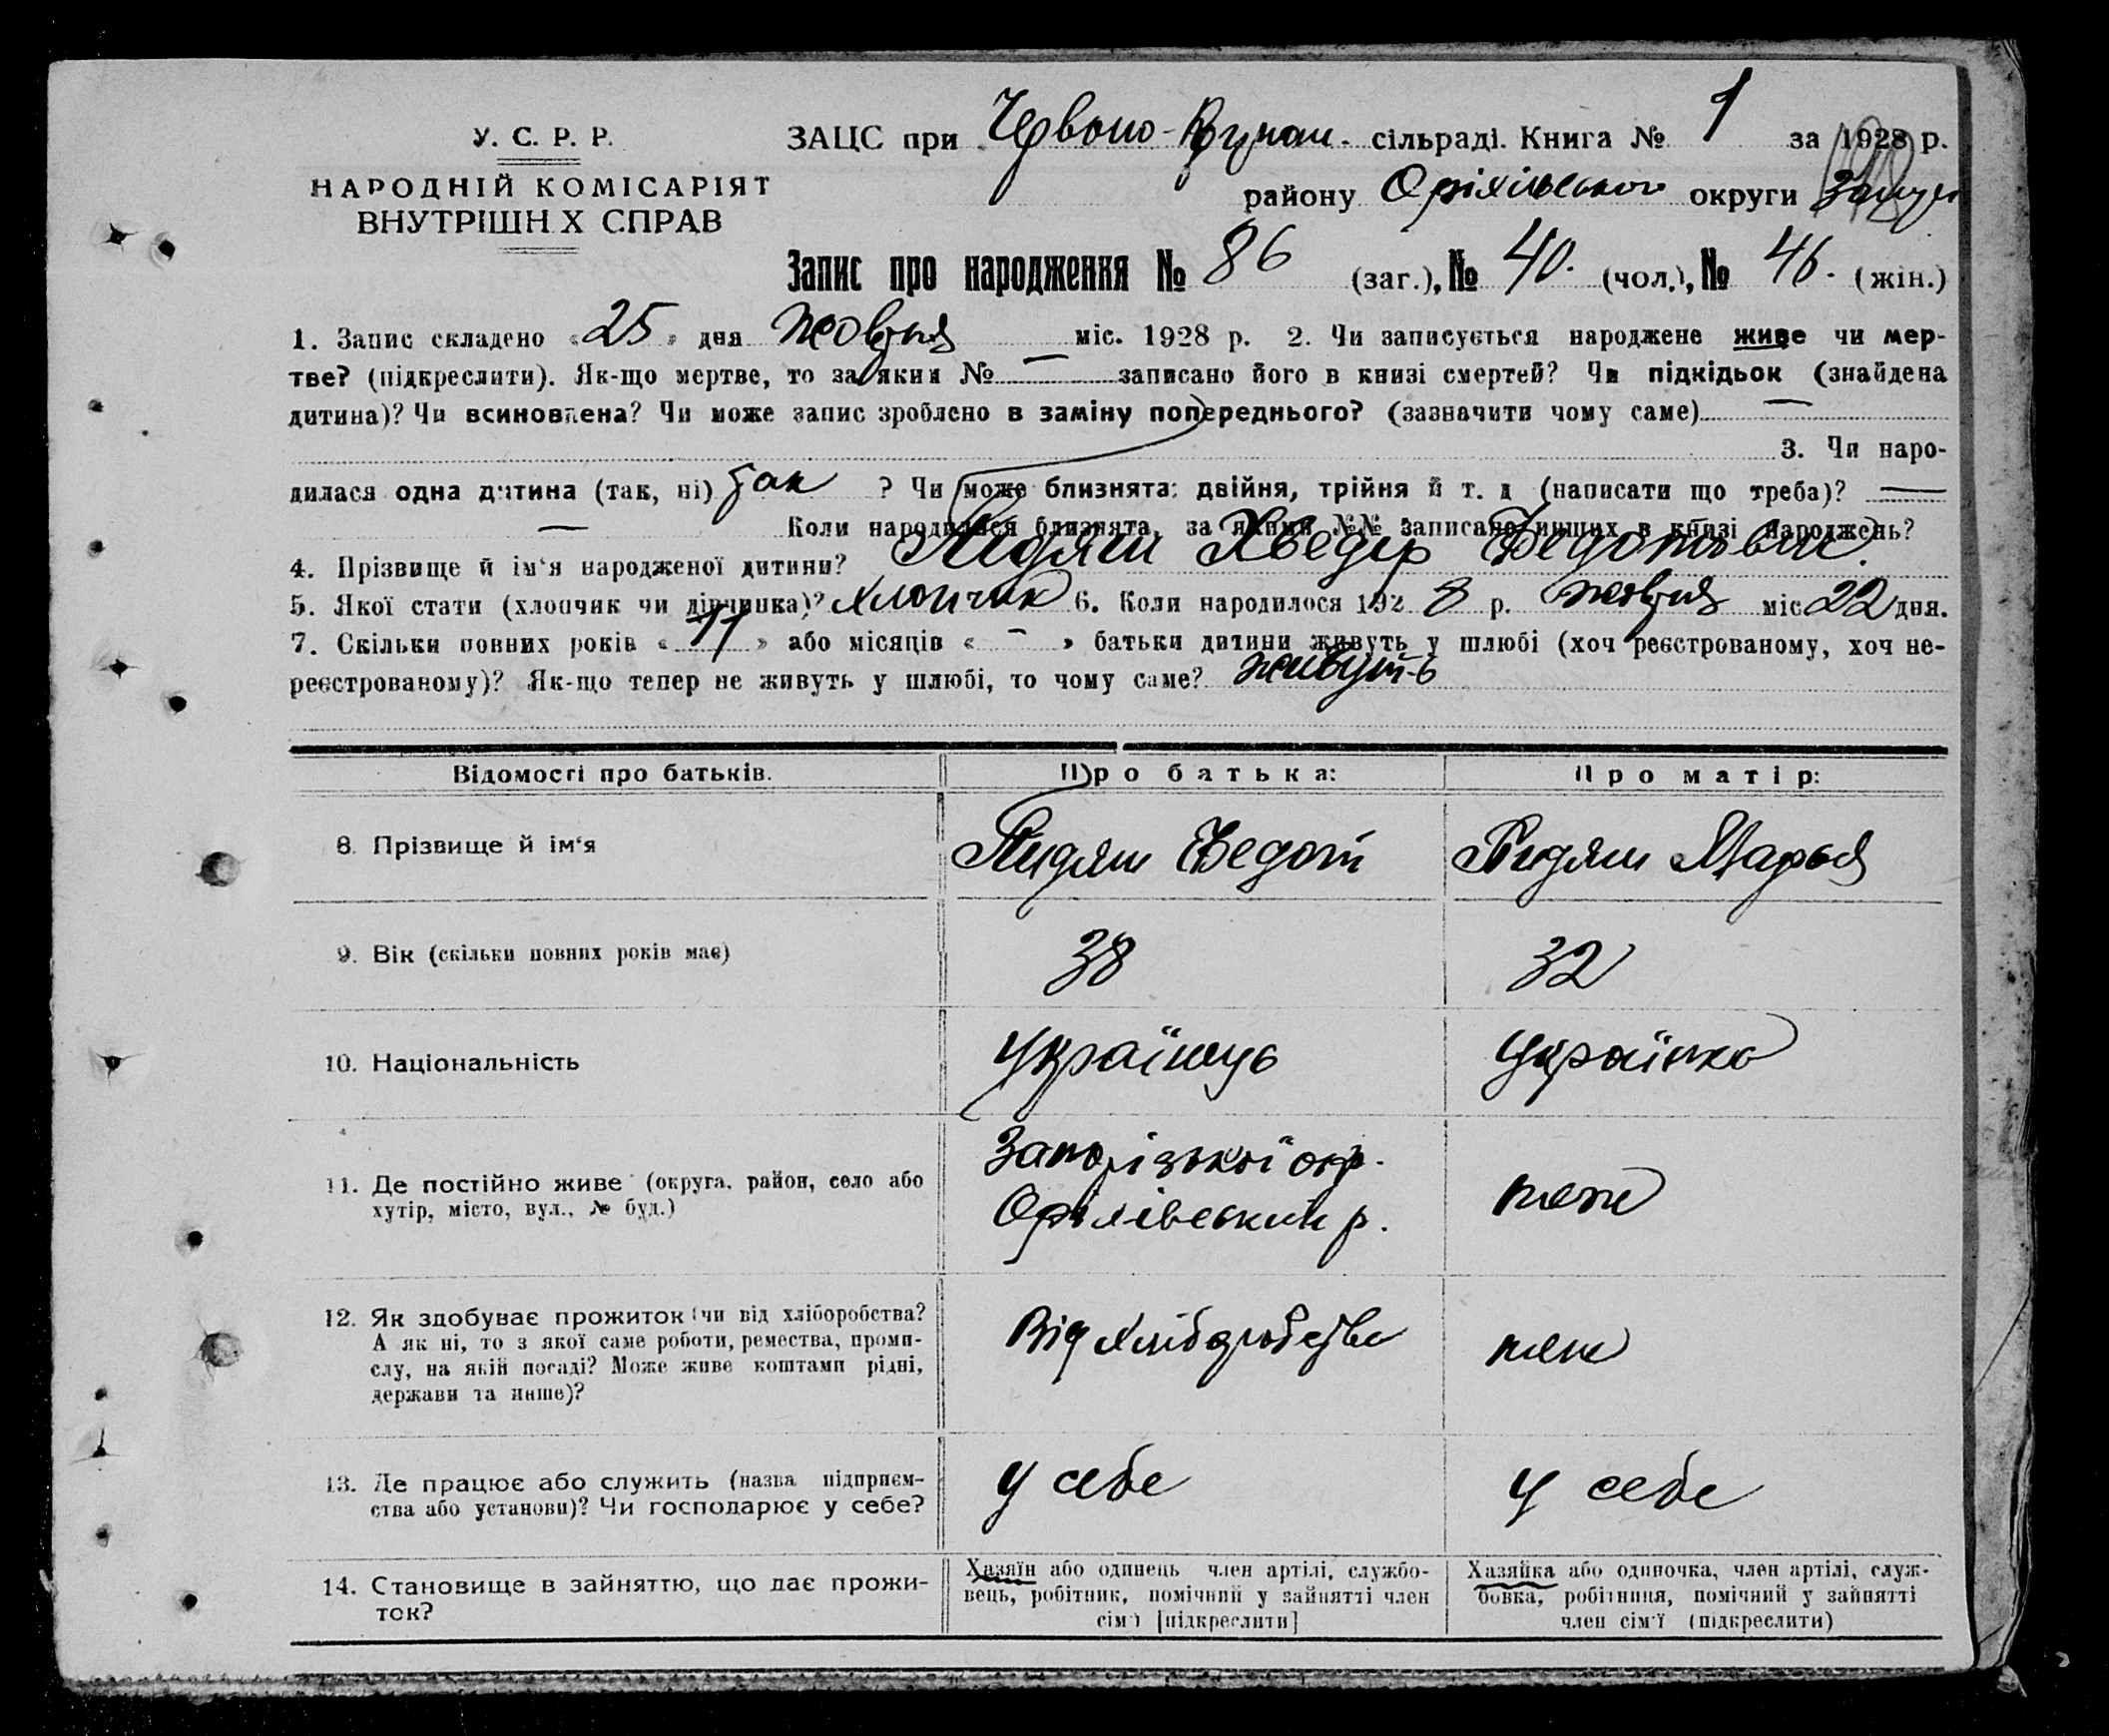 У. С. Р. Р.
НАРОДНІЙ КОМІСАРІЯТ
ВНУТРІШН Х СПРАВ
ЗАЦС при Червоно- сільраді. Книга № 1 за 1928 р.
району Оріхівського округи
Запис про народження № 86 (заг.), № 40. (чол.), № 46. (жін.)
1. Запис складено «25» дня жовтня міс. 1928 р. 2. Чи записується народжене живе чи мер-
тве? (підкреслити). Як-що мертве, то за яким № — записано його в книзі смертей? Чи підкідьок (знайдена
дитина)? Чи всиновлена? Чи може запис зроблено в заміну попереднього? (зазначити чому саме) —
3. Чи наро-
дилася одна дитина (так, ні) так ? Чи може близнята: двійня, трійня й т. д (написати що треба)? —
— Коли народилися близнята, за якими №№ записано инших в книзі народжень?
4. Прізвище й ім'я народженої дитини? Хведір Федотович
5. Якої стати (хлопчик чи дівчинка)? хлопчик 6. Коли народилося 1928 р. жовтня міс 22 дня.
7. Скільки повних років «11» або місяців « – » батьки дитини живуть у шлюбі (хоч реєстрованому, хоч не-
реєстрованому)? Як-що тепер не живуть у шлюбі, то чому саме? живуть
Відомості про батьків.
Про батька:
Про матір:
8. Прізвище й ім'я
Федот
Марья
9. Вік (скільки повних років має)
38
32
10. Національність
Українець
Українка
11. Де постійно живе (округа, район, село або
хутір, місто, вул., № буд.)
Запорізької окр.
Оріхівський р.
теж
12. Як здобуває прожиток (чи від хліборобства?
А як ні, то з якої саме роботи, ремества, проми-
слу, на якій посаді? Може живе коштами рідні,
держави та инше)?
Від хліборобства
теж
13. Де працює або служить (назва підприєм-
ства або установи)? Чи господарює у себе?
у себе
у себе
14. Становище в зайняттю, що дає прожи-
ток?
Хазяїн або одинець член артілі, службо-
вець, робітник, помічний у зайнятті член
сім'ї [підкреслити]
Хазяйка або одиночка, член артілі, служ-
бовка, робітниця, помічний у зайнятті
член сім'ї (підкреслити)